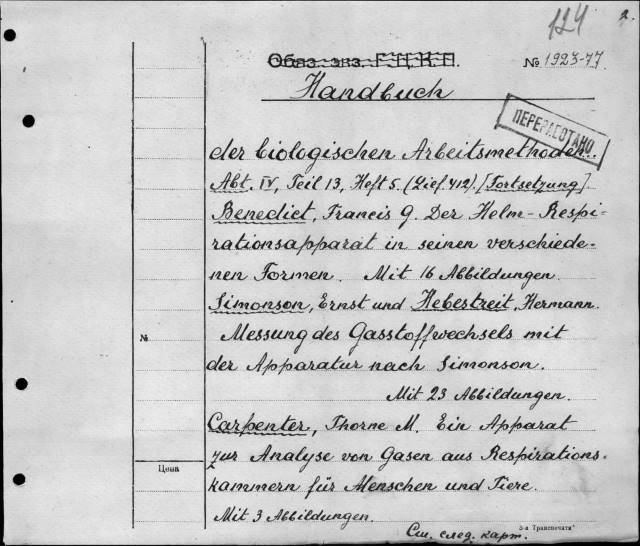 124
2.
Обяз. экз. Г.Ц.К.П.
№ 1923-77
Handbuch
ПЕРЕРАБОТАНО
der biologischen Arbeitsmethoden..
Abt. IV, Teil 13, Heft 5. (Lief. 412). [Fortsetzung].
Benedict, Francis G. Der Helm-Respi-
rationsapparat in seinen verschiede-
nen Formen. Mit 16 Abbildungen.
Simonson, Ernst und Hebestreit, Hermann.
№
Messung des Gasstoffwechsels mit
der Apparatur nach Simonson.
Mit 23 Abbildungen.
Carpenter, Thorne M. Ein Apparat
zur Analyse von Gasen aus Respirations-
Цена
kammern für Menschen und Tiere.
Mit 3 Abbildungen.
3-я Транспечати"
См. след. карт.